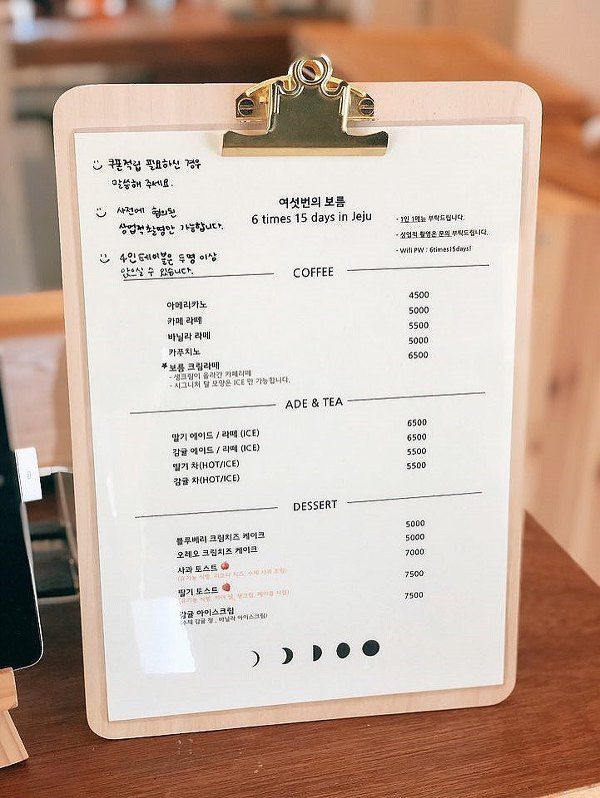 쿠폰적립 필요하신 경우
말씀해 주세요.
사전에 협의된
상업적촬영만 가능합니다.
4인테이블은 두명 이상
앉으실 수 있습니다.
여섯번의 보름
6 times 15 days in Jeju
- 1인 1메뉴 부탁드립니다.
- 상업적 촬영은 문의 부탁드립니다.
- Wifi PW : 6times15days!
COFFEE
아메리카노 4500
카페 라떼 5000
바닐라 라떼 5500
카푸치노 5000
*보름 크림라떼 6500
- 생크림이 올라간 카페라떼
- 시그니처 달 모양은 ICE 만 가능합니다.
ADE & TEA
딸기 에이드 / 라떼 (ICE) 6500
감귤 에이드 / 라떼 (ICE) 6500
딸기 차(HOT/ICE) 5500
감귤 차(HOT/ICE) 5500
DESSERT
블루베리 크림치즈 케이크 5000
오레오 크림치즈 케이크 5000
사과 토스트 7000
(유기농 식빵, 리코타 치즈, 수제 사과 조림)
딸기 토스트 7500
(유기농 식빵, 생크림, 메이플 시럽)
감귤 아이스크림 7500
(수제 감귤 청, 바닐라 아이스크림)